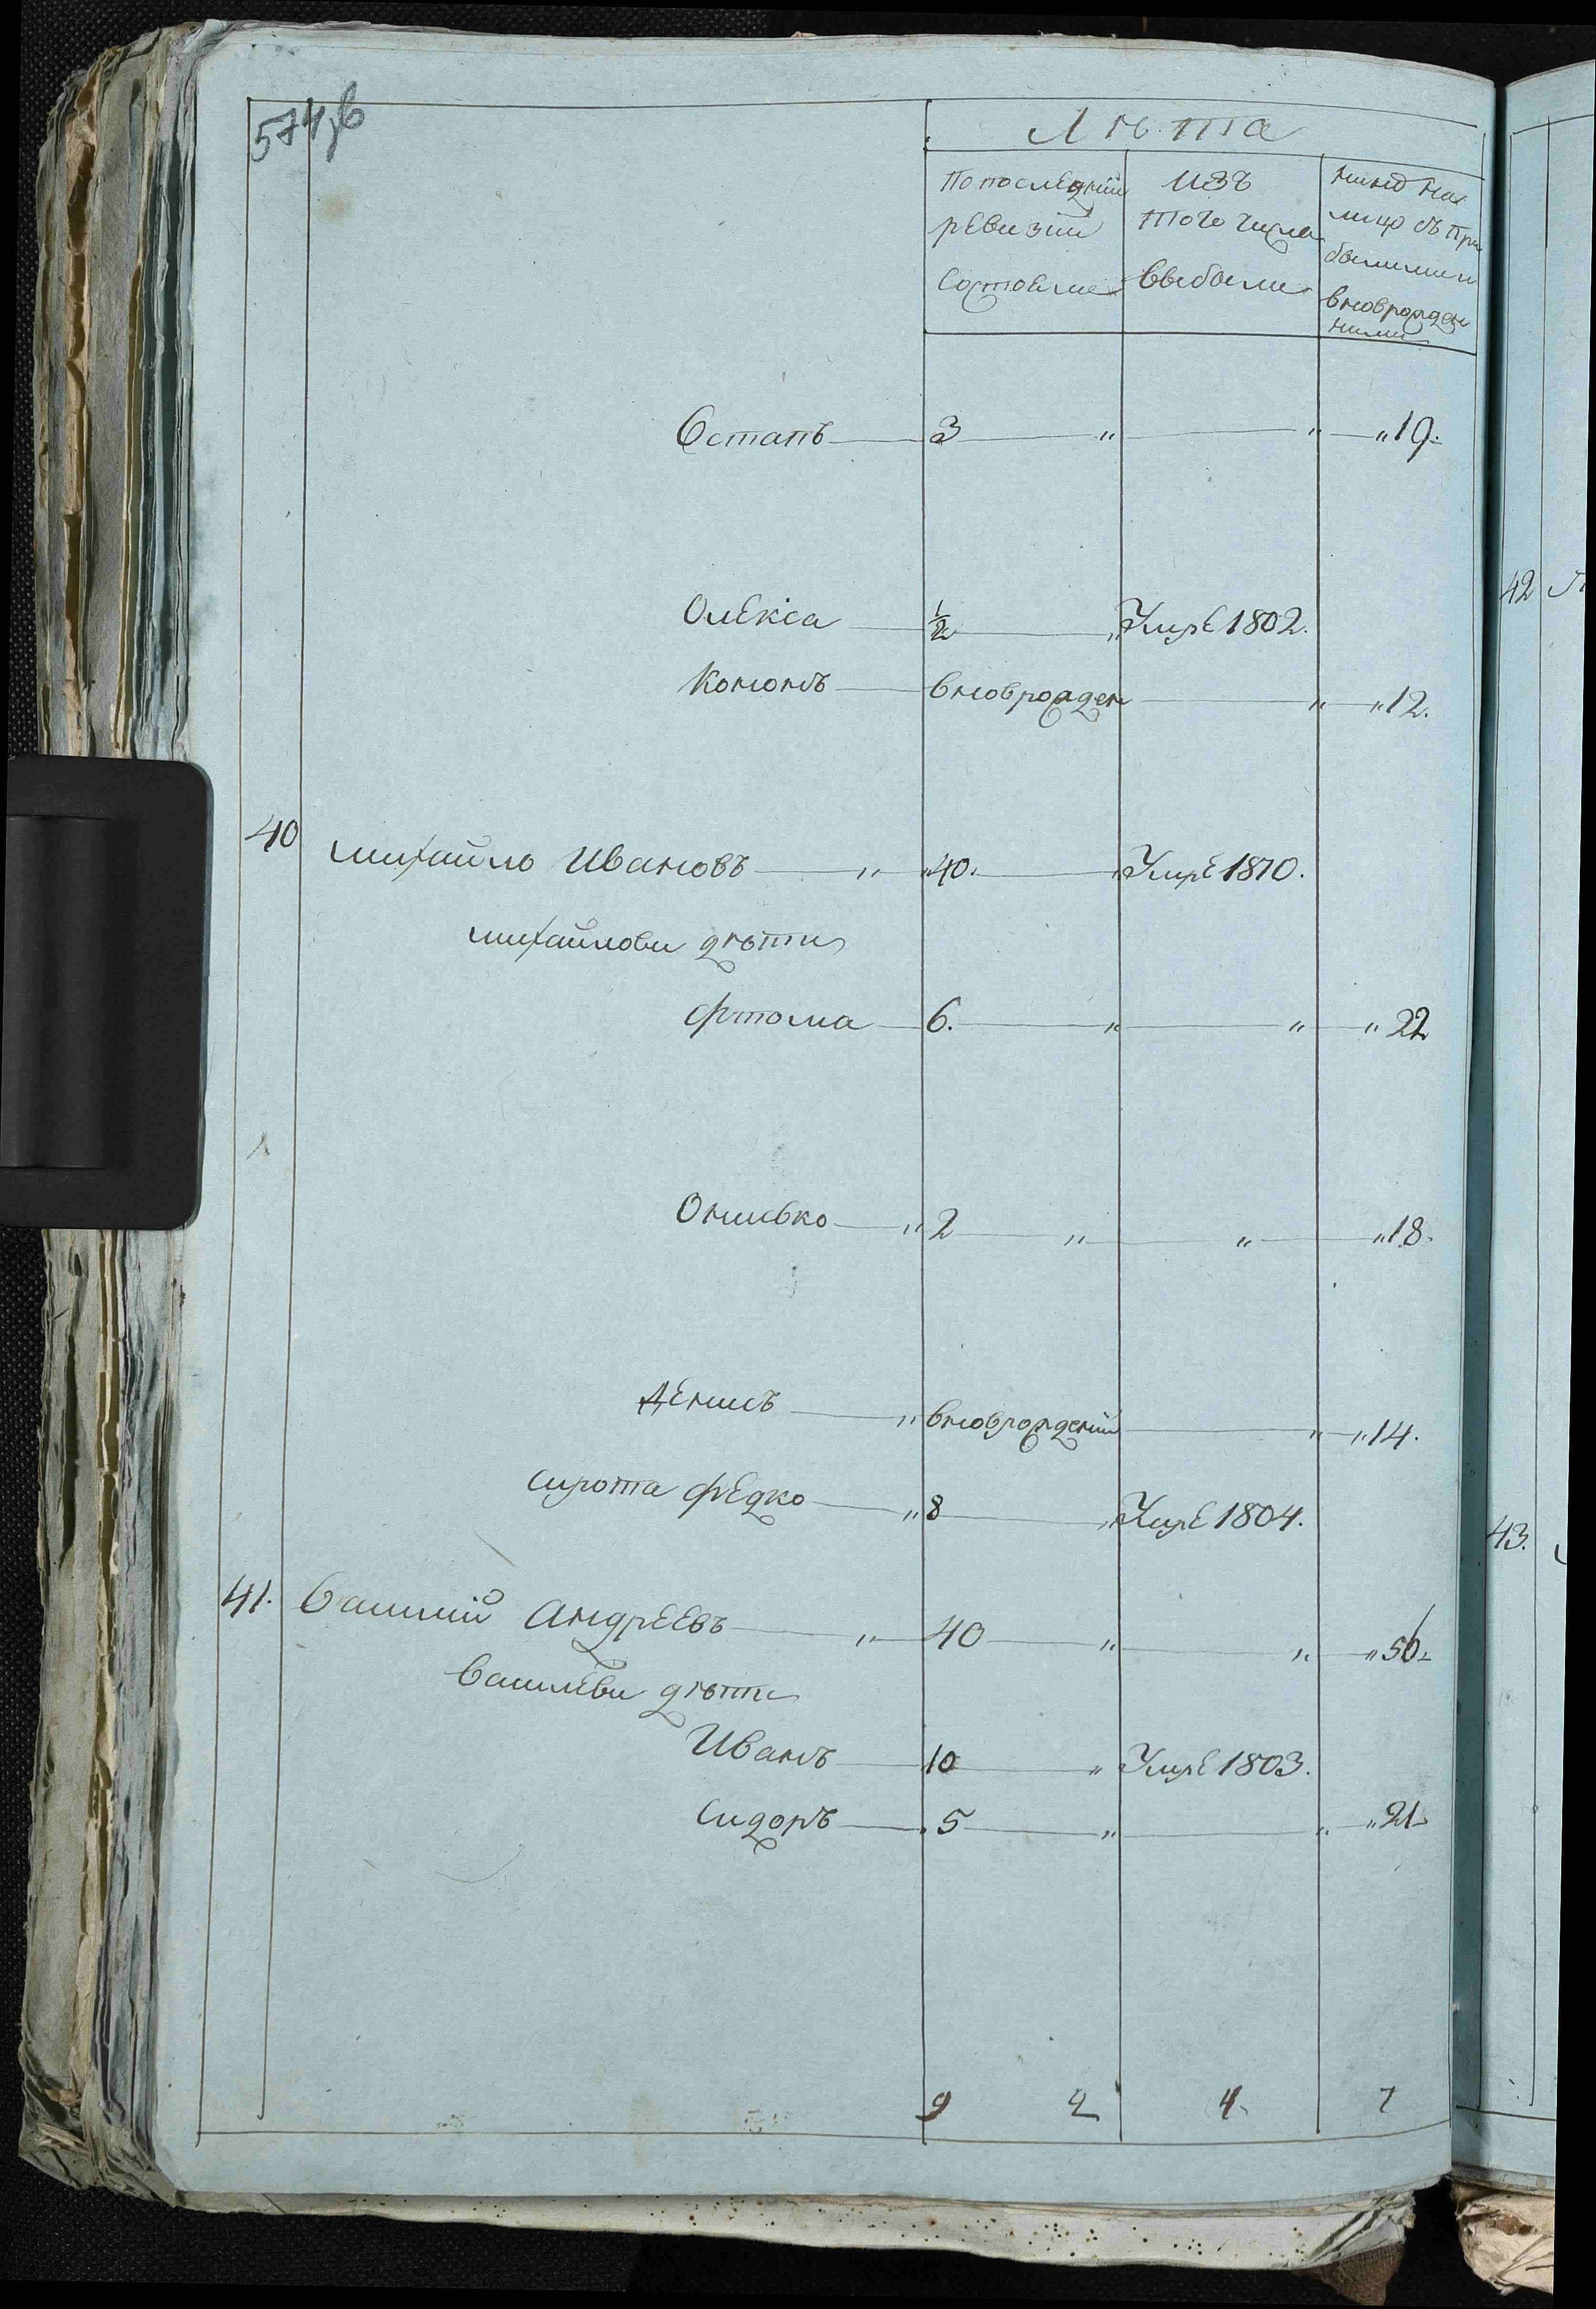 574 об
Лѣта
По последній ревизіи состояле
изъ того числа выбыли
нинѣ на лицо съ прибылими и вноврожденними
Остапъ 3 " " " 19.
Олекса 1/2 " Умре 1802.
Кононъ вноврожден " " 12.
40 Михайло Ивановъ " " 40. " Умре 1810.
Михайлови дѣти
Фтома 6. " " " 22
Онисько " 2 " " " 18.
Денисъ " вноврожденій " " 14.
Сирота Федко " 8 " Умре 1804.
41. Василій Андреевъ " 40 " " " 56.
Василеви дѣти
Иванъ 10 " Умре 1803.
Сидоръ 5 " " " 21
9 2 4 7
42
43.